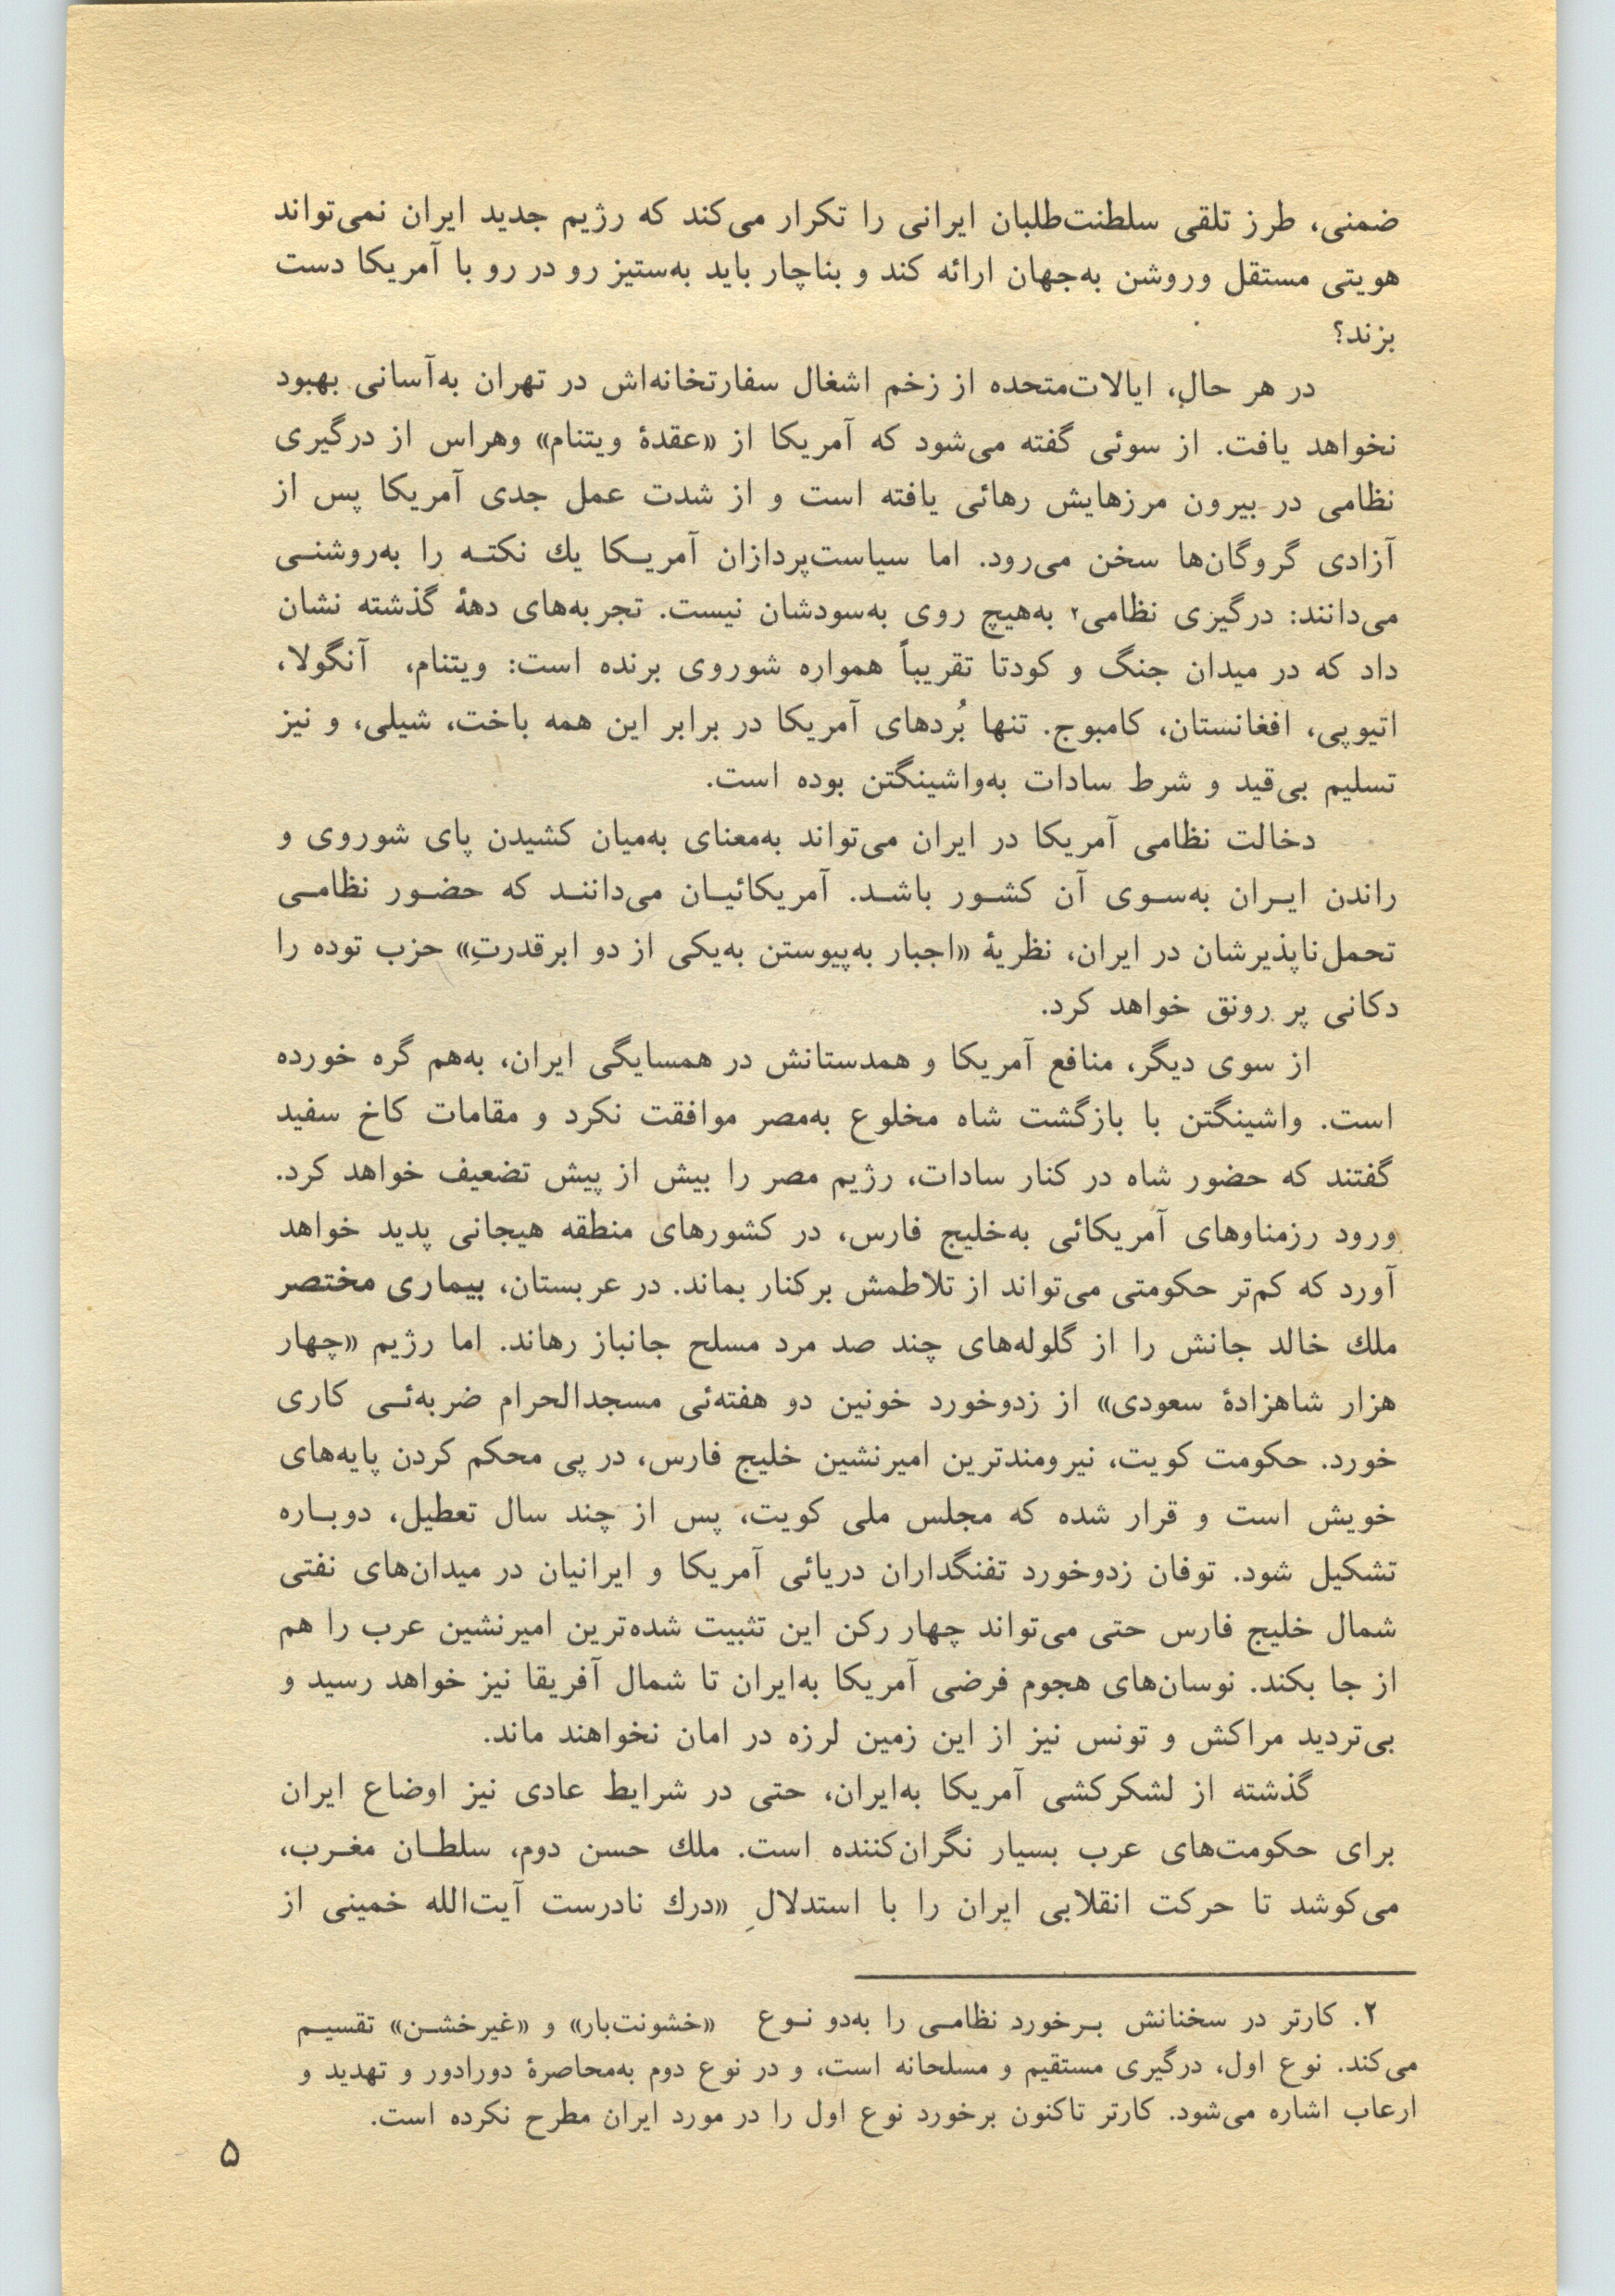 ضمنی، طرز تلقی سلطنت‌طلبان ایرانی را تکرار می‌کند که رژیم جدید ایران نمی‌تواند
هویتی مستقل وروشن به‌جهان ارائه کند و بناچار باید به‌ستیز رو در رو با آمریکا دست
بزند؟
در هر حالِ، ایالات‌متحده از زخم اشغال سفارتخانه‌اش در تهران به‌آسانی بهبود
نخواهد یافت. از سوئی گفته می‌شود که آمریکا از «عقدهٔ ویتنام» وهراس از درگیری
نظامی در بیرون مرزهایش رهائی یافته است و از شدت عمل جدی آمریکا پس از
آزادی گروگان‌ها سخن می‌رود. اما سیاست‌پردازان آمریـکا یك نکتـه را به‌روشنـی
می‌دانند: درگیری نظامی۲ به‌هیچ روی به‌سودشان نیست. تجربه‌های دههٔ گذشته نشان
داد که در میدان جنگ و کودتا تقریباً همواره شوروی برنده است: ویتنام، آنگولا،
اتیوپی، افغانستان، کامبوج. تنها بُردهای آمریکا در برابر این همه باخت، شیلی، و نیز
تسلیم بی‌قید و شرط سادات به‌واشینگتن بوده است.
دخالت نظامی آمریکا در ایران می‌تواند به‌معنای به‌میان کشیدن پای شوروی و
راندن ایـران به‌سـوی آن کشـور باشـد. آمریکائیـان می‌داننـد که حضـور نظامـی
تحمل‌ناپذیرشان در ایران، نظریهٔ «اجبار به‌پیوستن به‌یکی از دو ابرقدرتِ» حزب توده را
دکانی پر رونق خواهد کرد.
از سوی دیگر، منافع آمریکا و همدستانش در همسایگی ایران، به‌هم گره خورده
است. واشینگتن با بازگشت شاه مخلوع به‌مصر موافقت نکرد و مقامات کاخ سفید
گفتند که حضور شاه در کنار سادات، رژیم مصر را بیش از پیش تضعیف خواهد کرد.
ورود رزمناوهای آمریکائی به‌خلیج فارس، در کشورهای منطقه هیجانی پدید خواهد
آورد که کم‌تر حکومتی می‌تواند از تلاطمش برکنار بماند. در عربستان، بیماری مختصر
ملك خالد جانش را از گلوله‌های چند صد مرد مسلح جانباز رهاند. اما رژیم «چهار
هزار شاهزادهٔ سعودی» از زدوخورد خونین دو هفته‌ئی مسجدالحرام ضربه‌ئـی کاری
خورد. حکومت کویت، نیرومندترین امیرنشین خلیج فارس، در پی محکم کردن پایه‌های
خویش است و قرار شده که مجلس ملی کویت، پس از چند سال تعطیل، دوبـاره
تشکیل شود. توفان زدوخورد تفنگداران دریائی آمریکا و ایرانیان در میدان‌های نفتی
شمال خلیج فارس حتی می‌تواند چهار رکن این تثبیت شده‌ترین امیرنشین عرب را هم
از جا بکند. نوسان‌های هجوم فرضی آمریکا به‌ایران تا شمال آفریقا نیز خواهد رسید و
بی‌تردید مراکش و تونس نیز از این زمین لرزه در امان نخواهند ماند.
گذشته از لشکرکشی آمریکا به‌ایران، حتی در شرایط عادی نیز اوضاع ایران
برای حکومت‌های عرب بسیار نگران‌کننده است. ملك حسن دوم، سلطـان مغـرب،
می‌کوشد تا حرکت انقلابی ایران را با استدلالِ «درك نادرست آیت‌الله خمینی از
۲. کارتر در سخنانش بـرخورد نظامـی را به‌دو نـوع «خشونت‌بار» و «غیرخشـن» تقسیـم
می‌کند. نوع اول، درگیری مستقیم و مسلحانه است، و در نوع دوم به‌محاصرهٔ دورادور و تهدید و
ارعاب اشاره می‌شود. کارتر تاکنون برخورد نوع اول را در مورد ایران مطرح نکرده است.
۵